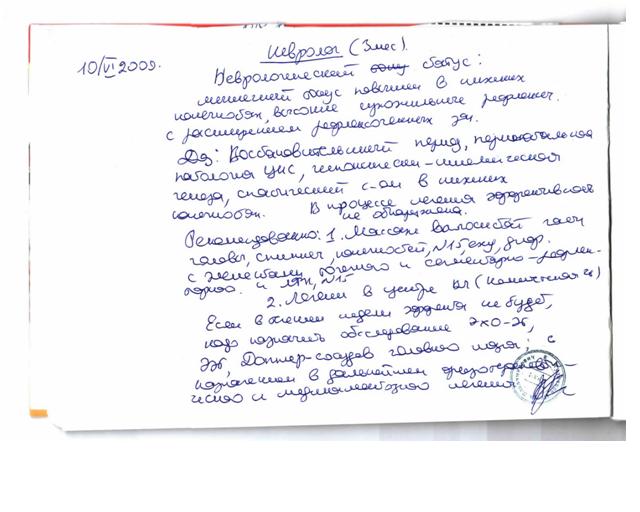 Невролог (3 мес).
10/VI 2009.
Неврологический статус:
мышечный тонус повышен в нижних
конечностях, высокие сухожильные рефлексы
с расширением рефлексогенных зон.
Дз: Восстановительный период, перинатальная
патология ЦНС, гипоксически-ишемического
генеза, спастический с-ом в нижних
конечностях. В процессе лечения эффективность
не обнаружена.
Рекомендовано: 1. Массаж волосистой части
головы, спины, конечностей, N15,
с элементами точечного и сегментарно-рефлек-
торного и ЛФК, N15
2. Лечение в центре
Если в течении недели эффекта не будет,
надо назначить обследование ЭХО-ЭГ,
ЭЭГ, Доплер-сосудов головного мозга; с
назначением в дальнейшем физиотерапевти-
ческого и медикаментозного лечения